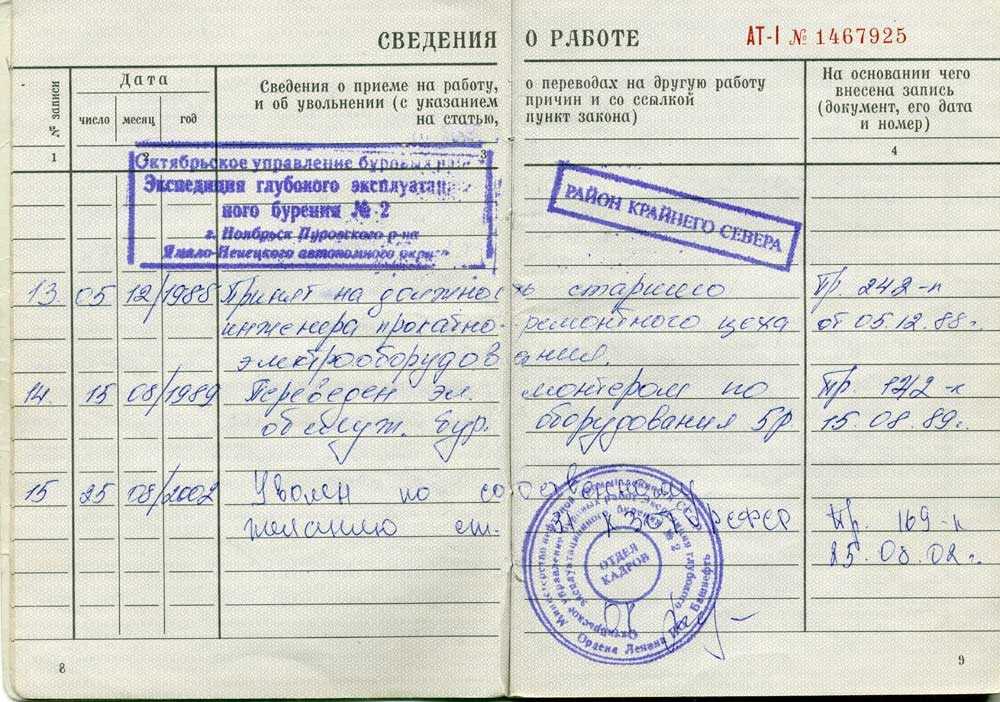 СВЕДЕНИЯ О РАБОТЕ АТ-I № 1467925
№ записи
Дата
число месяц год
Сведения о приеме на работу, о переводах на другую работу
и об увольнении (с указанием причин и со ссылкой
на статью, пункт закона)
На основании чего
внесена запись
(документ, его дата
и номер)
1 2 3 4
Октябрьское управление буровых
Экспедиция глубокого эксплуатацион
ного бурения № 2
г. Ноябрьск Пуровского р-на
Ямало-Ненецкого автономного округа
РАЙОН КРАЙНЕГО СЕВЕРА
13 05 12/1988 Принят на должность старшего Пр 242-п
инженера прокатно-ремонтного цеха от 05.12.88г.
электрооборудования.
14 15 08/1989 Переведен эл. монтером по Пр. 172-п
обслуж. бур. оборудования 5р. 15.08.89г.
15 25 08/2002 Уволен по собственному
желанию ст. 31 КЗОТ Пр. 169-п
25.08.02г.
ОТДЕЛ
КАДРОВ
Ордена Ленина Башнефть
8 9